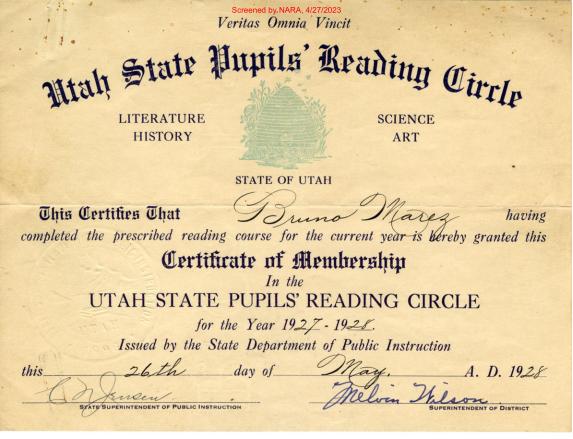 Screened by NARA, 4/27/2023
Veritas Omnia Vincit
Utah State Pupils' Reading Circle
LITERATURE SCIENCE
HISTORY ART
STATE OF UTAH
This Certifies That Bruno Marez having
completed the prescribed reading course for the current year is hereby granted this
Certificate of Membership
In the
UTAH STATE PUPILS' READING CIRCLE
for the Year 1927-1928.
Issued by the State Department of Public Instruction
this 26th day of May. A. D. 1928
C N Jensen Melvin Wilson
STATE SUPERINTENDENT OF PUBLIC INSTRUCTION SUPERINTENDENT OF DISTRICT